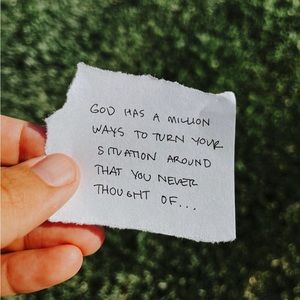 GOD HAS A MILLION
WAYS TO TURN YOUR
SITUATION AROUND
THAT YOU NEVER
THOUGHT OF...